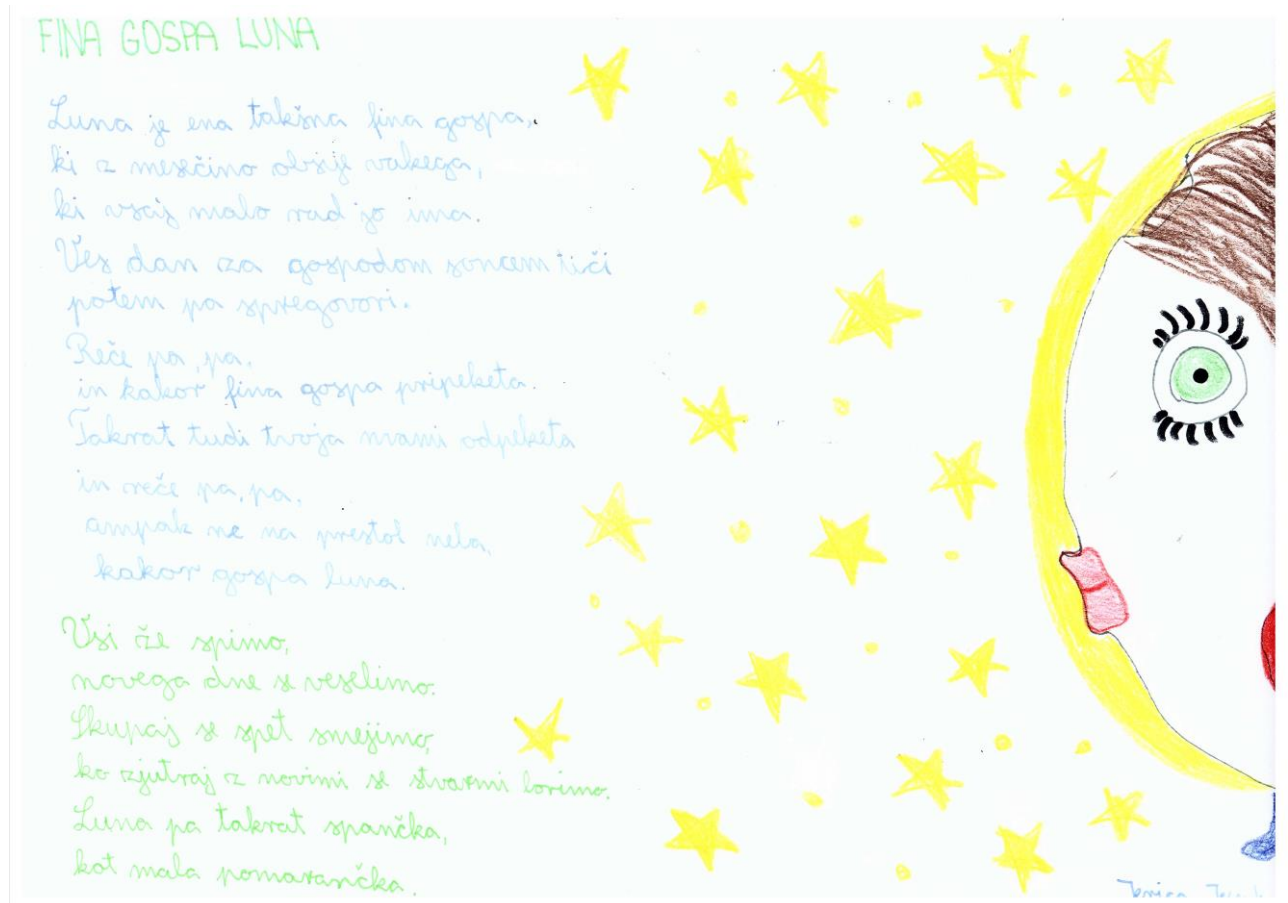 FINA GOSPA LUNA
Luna je ena takšna fina gospa,
ki z mesečino obsije vsakega,
ki vsaj malo rad jo ima.
Ves dan za gospodom soncem tiči
potem pa spregovori.
Reče pa, pa,
in kakor fina gospa pripeketa.
Takrat tudi tvoja mami odpeketa
in reče pa, pa,
ampak ne na prestol neba,
kakor gospa luna.
Vsi že spimo,
novega dne se veselimo.
Skupaj se spet smejimo,
ko zjutraj z novimi se stvarmi borimo.
Luna pa takrat spančka,
kot mala pomarančka.